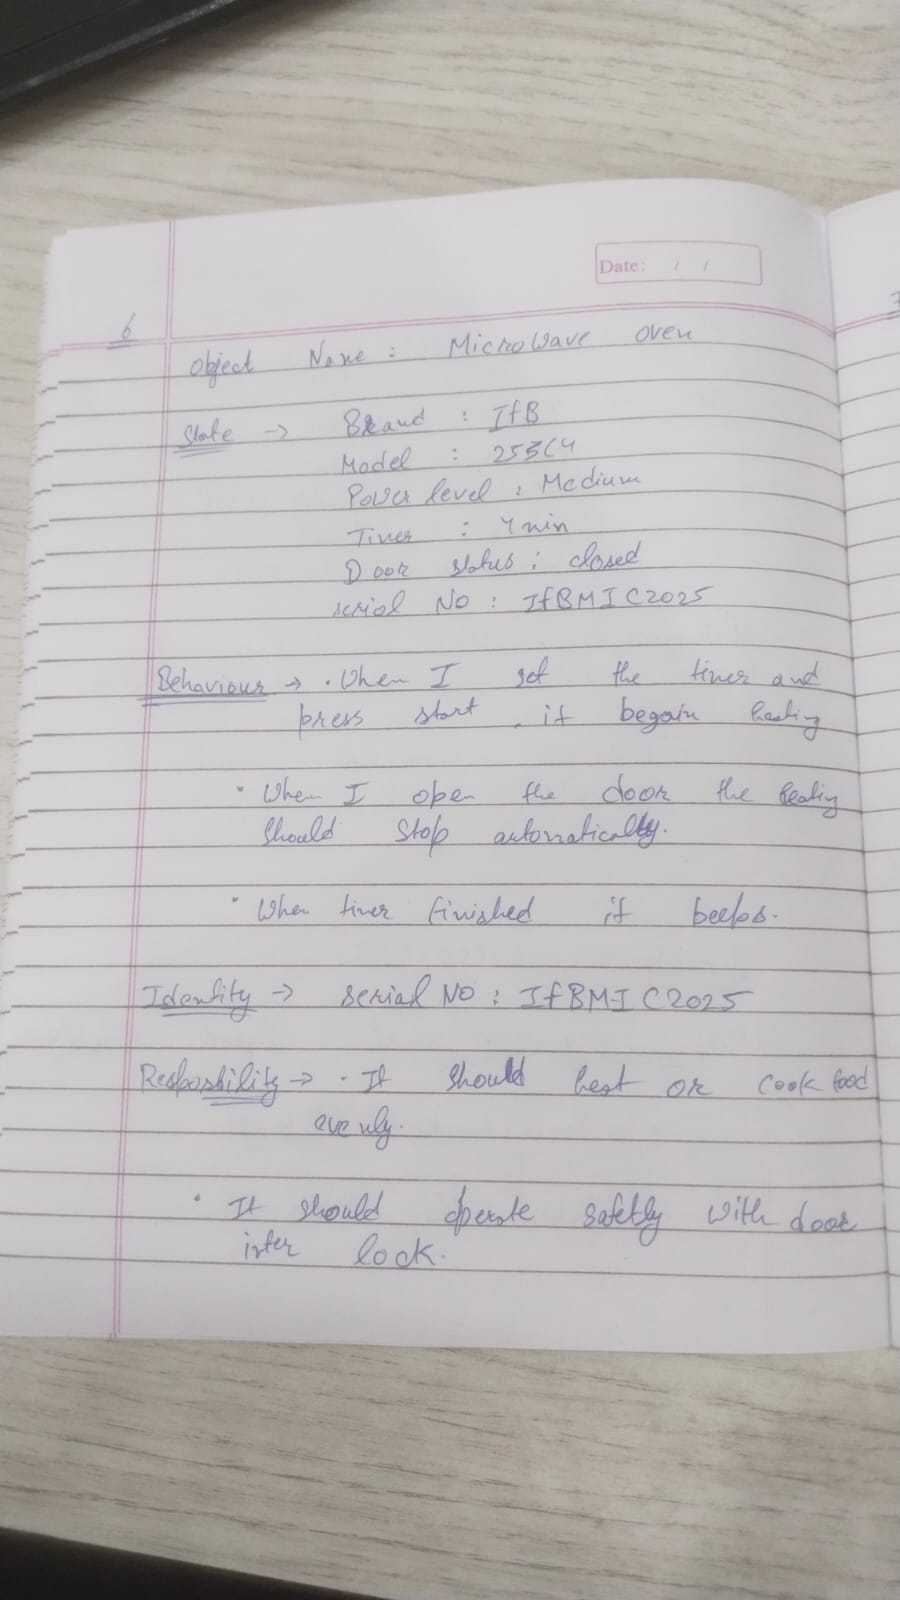 Date: / /
6
Object Name : Microwave oven
State → Brand : IfB
Model : 25BC4
Power level : Medium
Timer : 4 min
Door status : closed
serial No : IfBMIC2025
Behaviour → • When I set the timer and
press start , it begain heating
• When I open the door the heating
should stop automatically.
• When timer finished it beeps.
Identity → serial No : IfBMIC2025
Resposbility → • It should heat or cook food
evenly.
• It should operate safetly with door
inter lock.